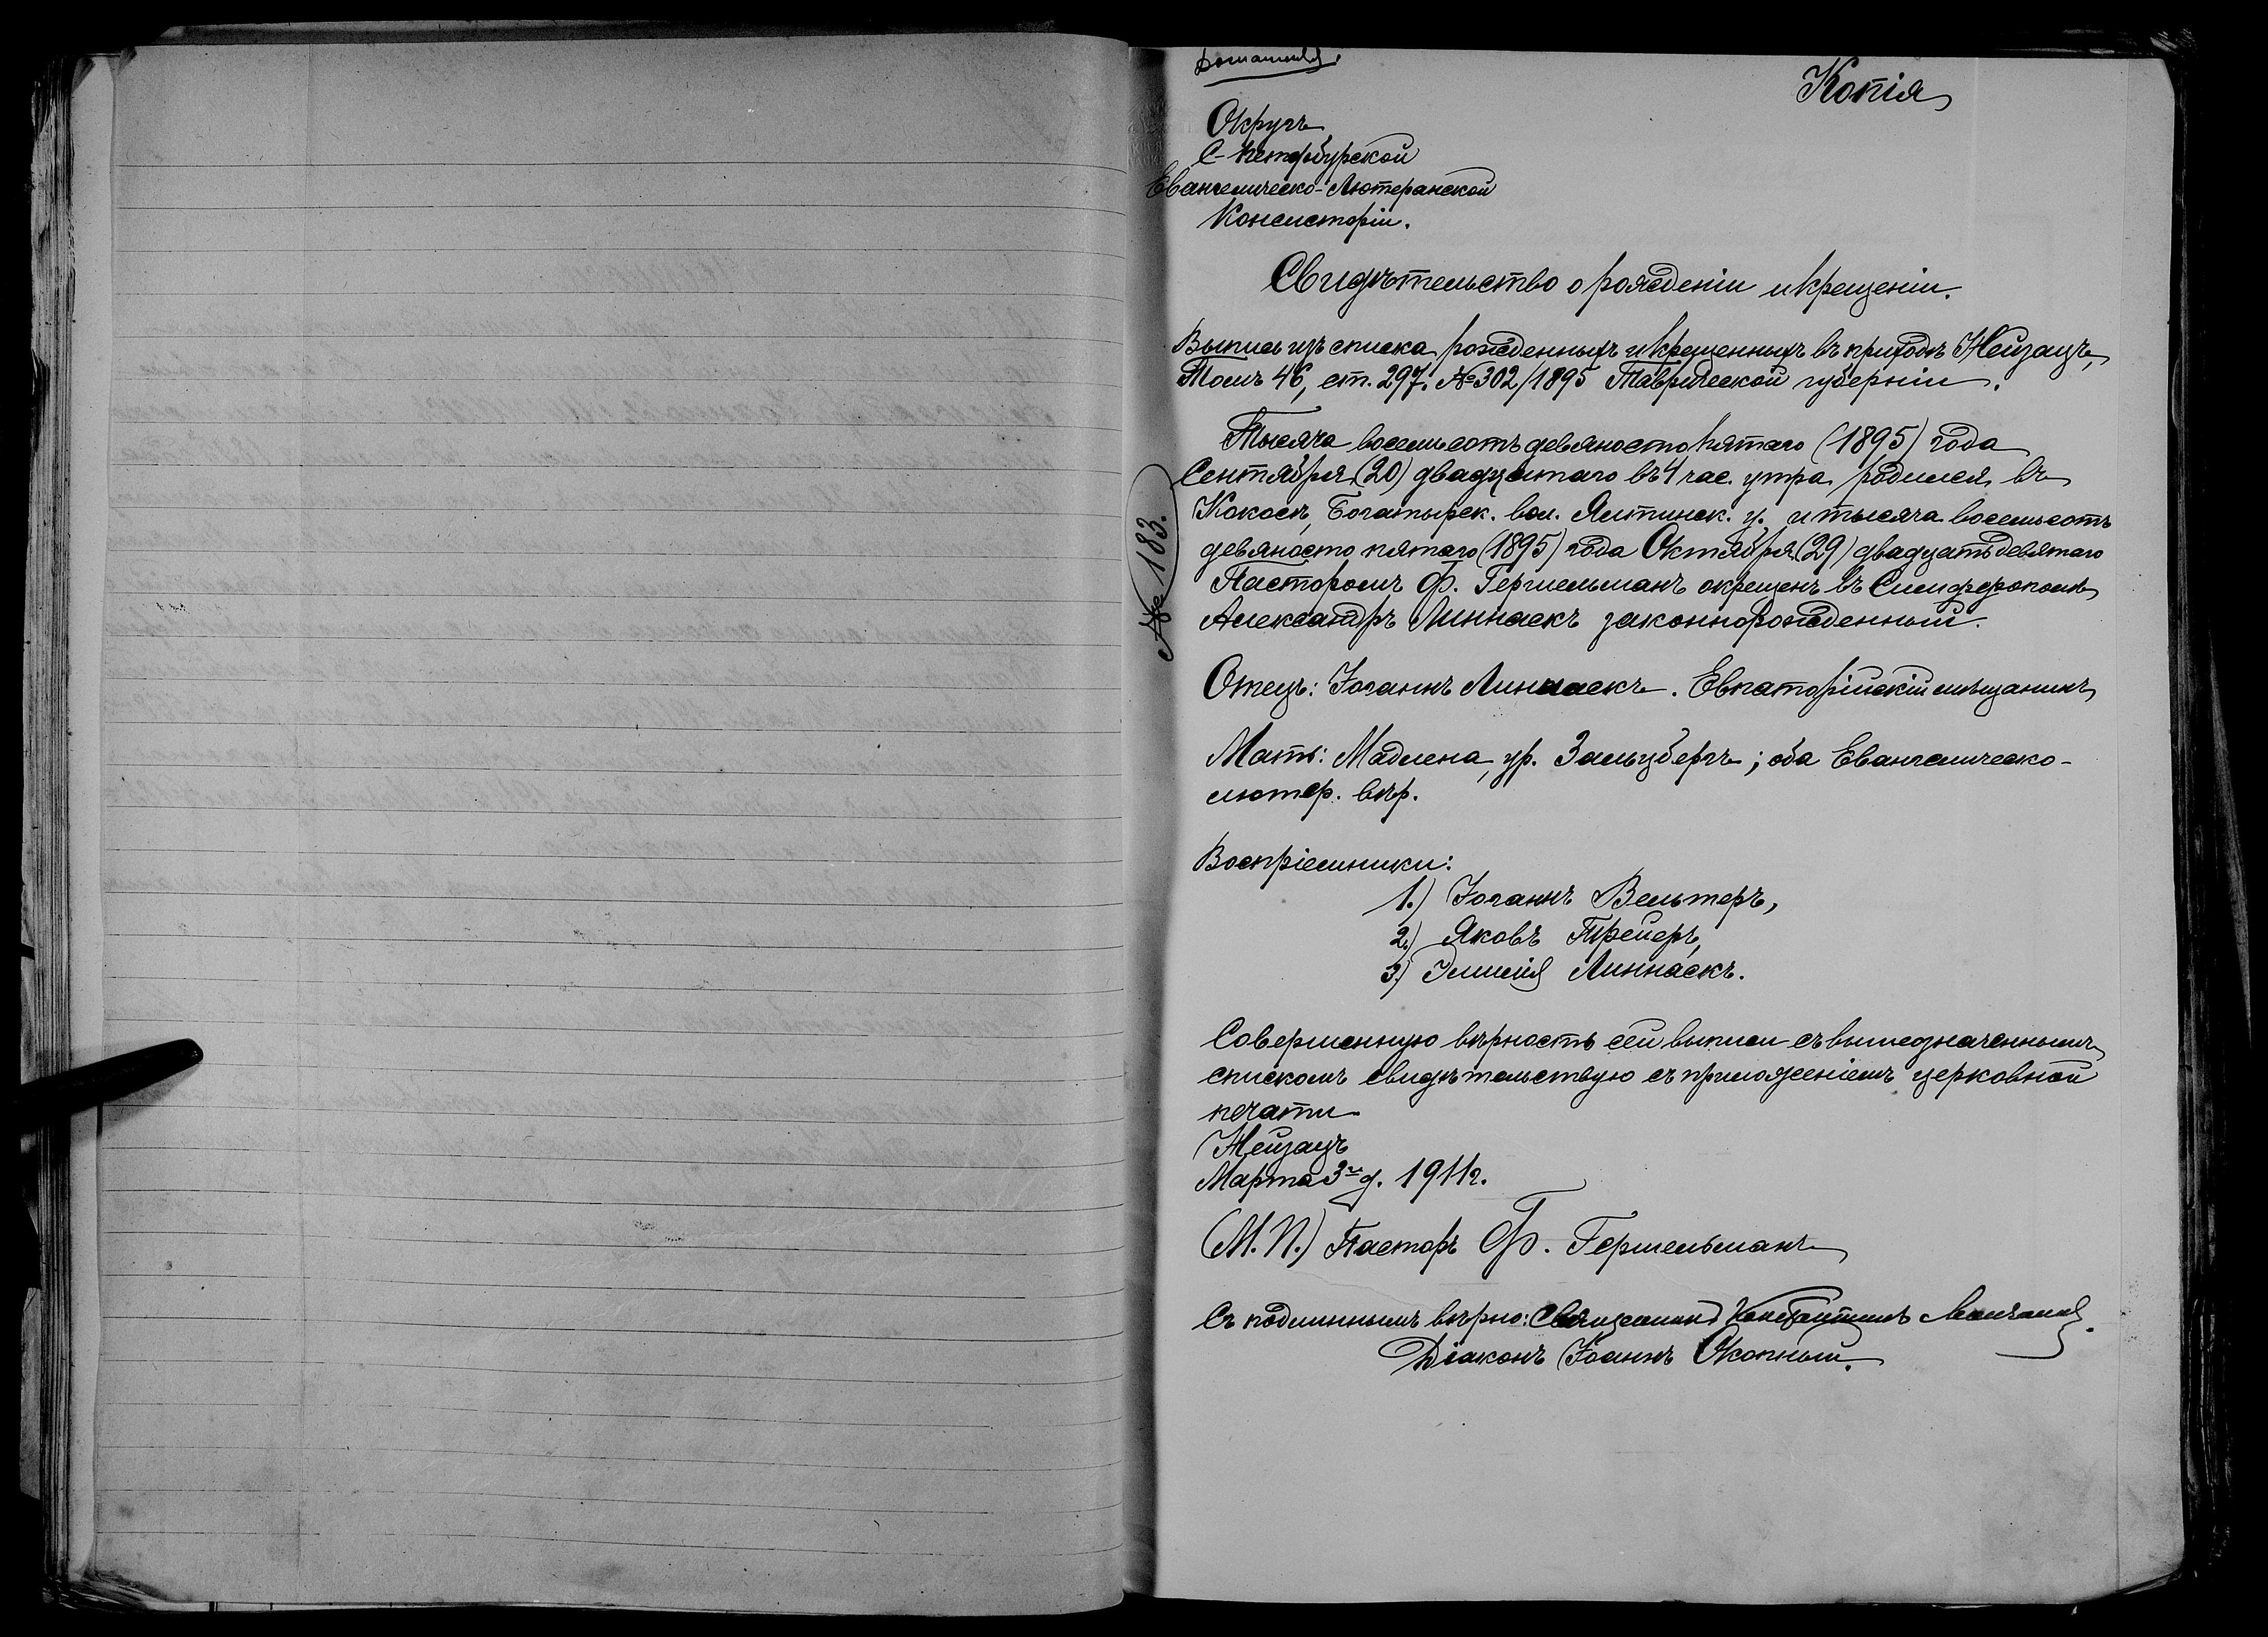 Домашняя.
Копія
Округъ
С-Петербурской
Евангелическо-Лютеранской
Консисторіи.
Свидѣтельство о рожденіи и крещеніи.
Выпись изъ списка рожденныхъ и крещенныхъ въ приходѣ Нейзацъ,
Томъ 46, ст. 297. № 302/1895 Таврической губерніи.
Тысяча восемьсотъ девяносто пятаго (1895) года
Сентября (20) двадцатаго въ 4 час. утра родился въ
Кокосѣ, Богатырск. вол. Ялтинск. у. и тысяча восемьсотъ
девяносто пятаго (1895) года Октября (29) двадцать девятаго
Пасторомъ Ф. Гершельманъ окрещенъ въ Симферополѣ
Александръ Линнаскъ законнорожденный.
№ 183.
Отецъ: Іоганнъ Линнаскъ. Евпаторійскій мѣщанинъ
Мать: Мадлена, ур. Зальцбергъ; оба Евангелическо-
лютер. вѣр.
Воспріемники:
1.) Іоганнъ Вельтеръ,
2.) Яковъ Трейеръ,
3.) Эмилія Линнаскъ.
Совершенную вѣрность сей выписи съ вышеозначеннымъ
спискомъ свидѣтельствую съ приложеніемъ церковной
печати
Нейзацъ
Марта 3го д. 1911 г.
(М. П.) Пасторъ Ф. Гершельманъ
Съ подлиннымъ вѣрно: Священникъ Константинъ
Діаконъ Іоаннъ Окопный.